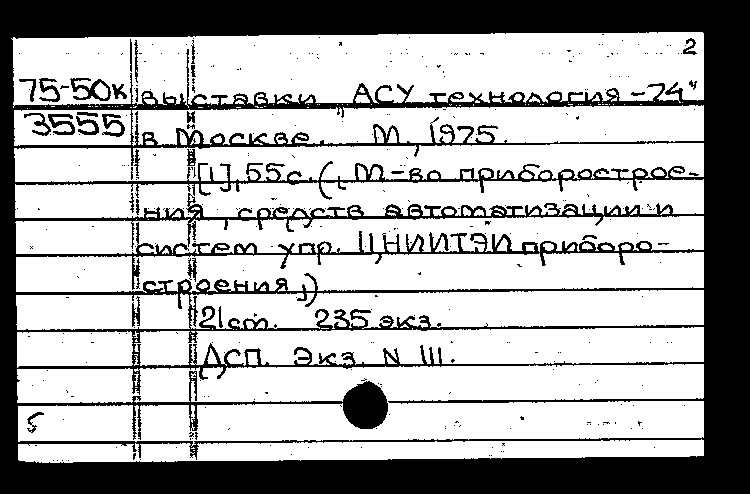 2
75-50к выставки „АСУ технология-74"
3555 в Москве. М., 1975.
[1], 55с. (, М-во приборострое-
ния, средств автоматизации и
систем упр. ЦНИИТЭИ приборо-
строения,)
21cm. 235 экз.
ДСП. Экз. N 111.
5